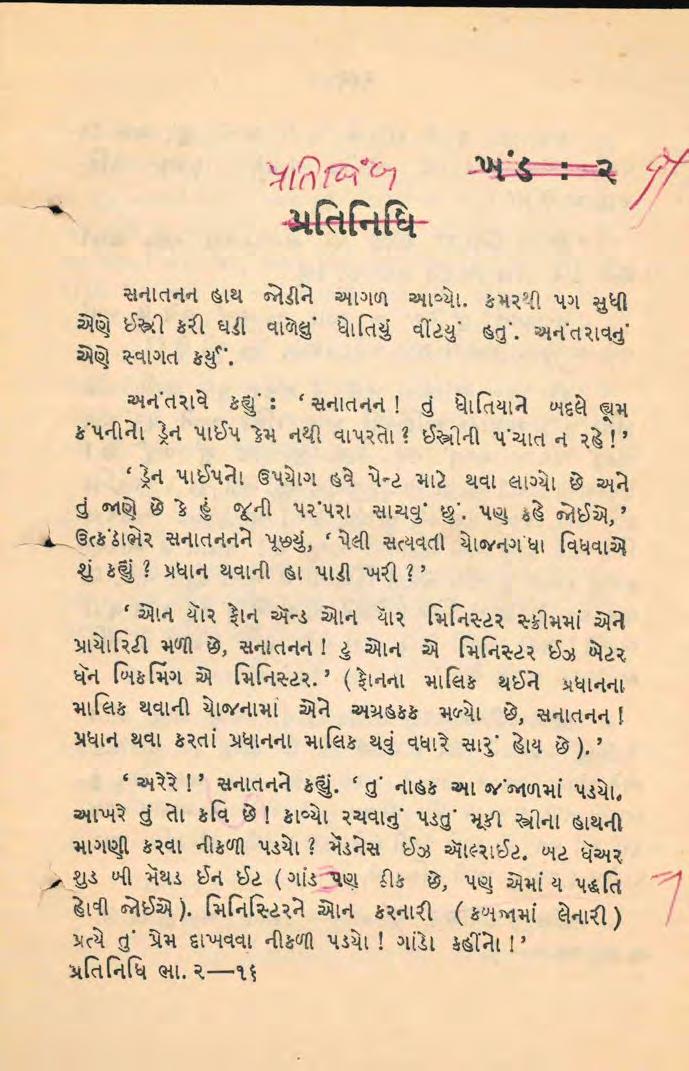 ખંડ : ૨
પ્રતિબિંબ
પ્રતિનિધિ
સનાતનન હાથ જોડીને આગળ આવ્યો. કમરથી પગ સુધી
એણે ઈસ્ત્રી કરી ઘડી વાળેલું ધોતિયું વીંટયું હતું. અનંતરાવનું
એણે સ્વાગત કર્યું.
અનંતરાવે કહ્યું : ‘ સનાતનન ! તું ધોતિયાને બદલે હ્યૂમ
કંપનીનો ડ્રેન પાઈપ કેમ નથી વાપરતો ? ઈસ્ત્રીની પંચાત ન રહે ! ’
‘ ડ્રેન પાઈપનો ઉપયોગ હવે પેન્ટ માટે થવા લાગ્યો છે અને
તું જાણે છે કે હું જૂની પરંપરા સાચવું છું. પણ કહે જોઈએ, ’
ઉત્કંઠાભેર સનાતનનને પૂછ્યું, ‘ પેલી સત્યવતી યોજનગંધા વિધવાએ
શું કહ્યું ? પ્રધાન થવાની હા પાડી ખરી ? ’
‘ ઓન યૉર ફોન ઍન્ડ ઓન યૉર મિનિસ્ટર સ્કીમમાં એને
પ્રાયોરિટી મળી છે, સનાતનન ! ટુ ઓન એ મિનિસ્ટર ઈઝ બેટર
ધૅન બિકમિંગ એ મિનિસ્ટર. ’ ( ફોનના માલિક થઈને પ્રધાનના
માલિક થવાની યોજનામાં એને અગ્રહકક મળ્યો છે, સનાતનન !
પ્રધાન થવા કરતાં પ્રધાનના માલિક થવું વધારે સારું હોય છે ). ’
‘ અરેરે ! ’ સનાતનને કહ્યું. ‘ તું નાહક આ જંજાળમાં પડયો.
આખરે તું તો કવિ છે ! કાવ્યો રચવાનું પડતું મૂકી સ્ત્રીના હાથની
માગણી કરવા નીકળી પડયો ? મૅડનેસ ઈઝ ઑલરાઈટ. બટ ધૅઅર
શુડ બી મૅથડ ઈન ઈટ ( ગાંડ પણ ઠીક છે, પણ એમાં ય પદ્ધતિ
હોવી જોઈએ ). મિનિસ્ટિરને ઓન કરનારી ( કબજામાં લેનારી )
પ્રત્યે તું પ્રેમ દાખવવા નીકળી પડયો ! ગાંડો કહીંનો ! ’
પ્રતિનિધિ ભા. ૨—૧૬